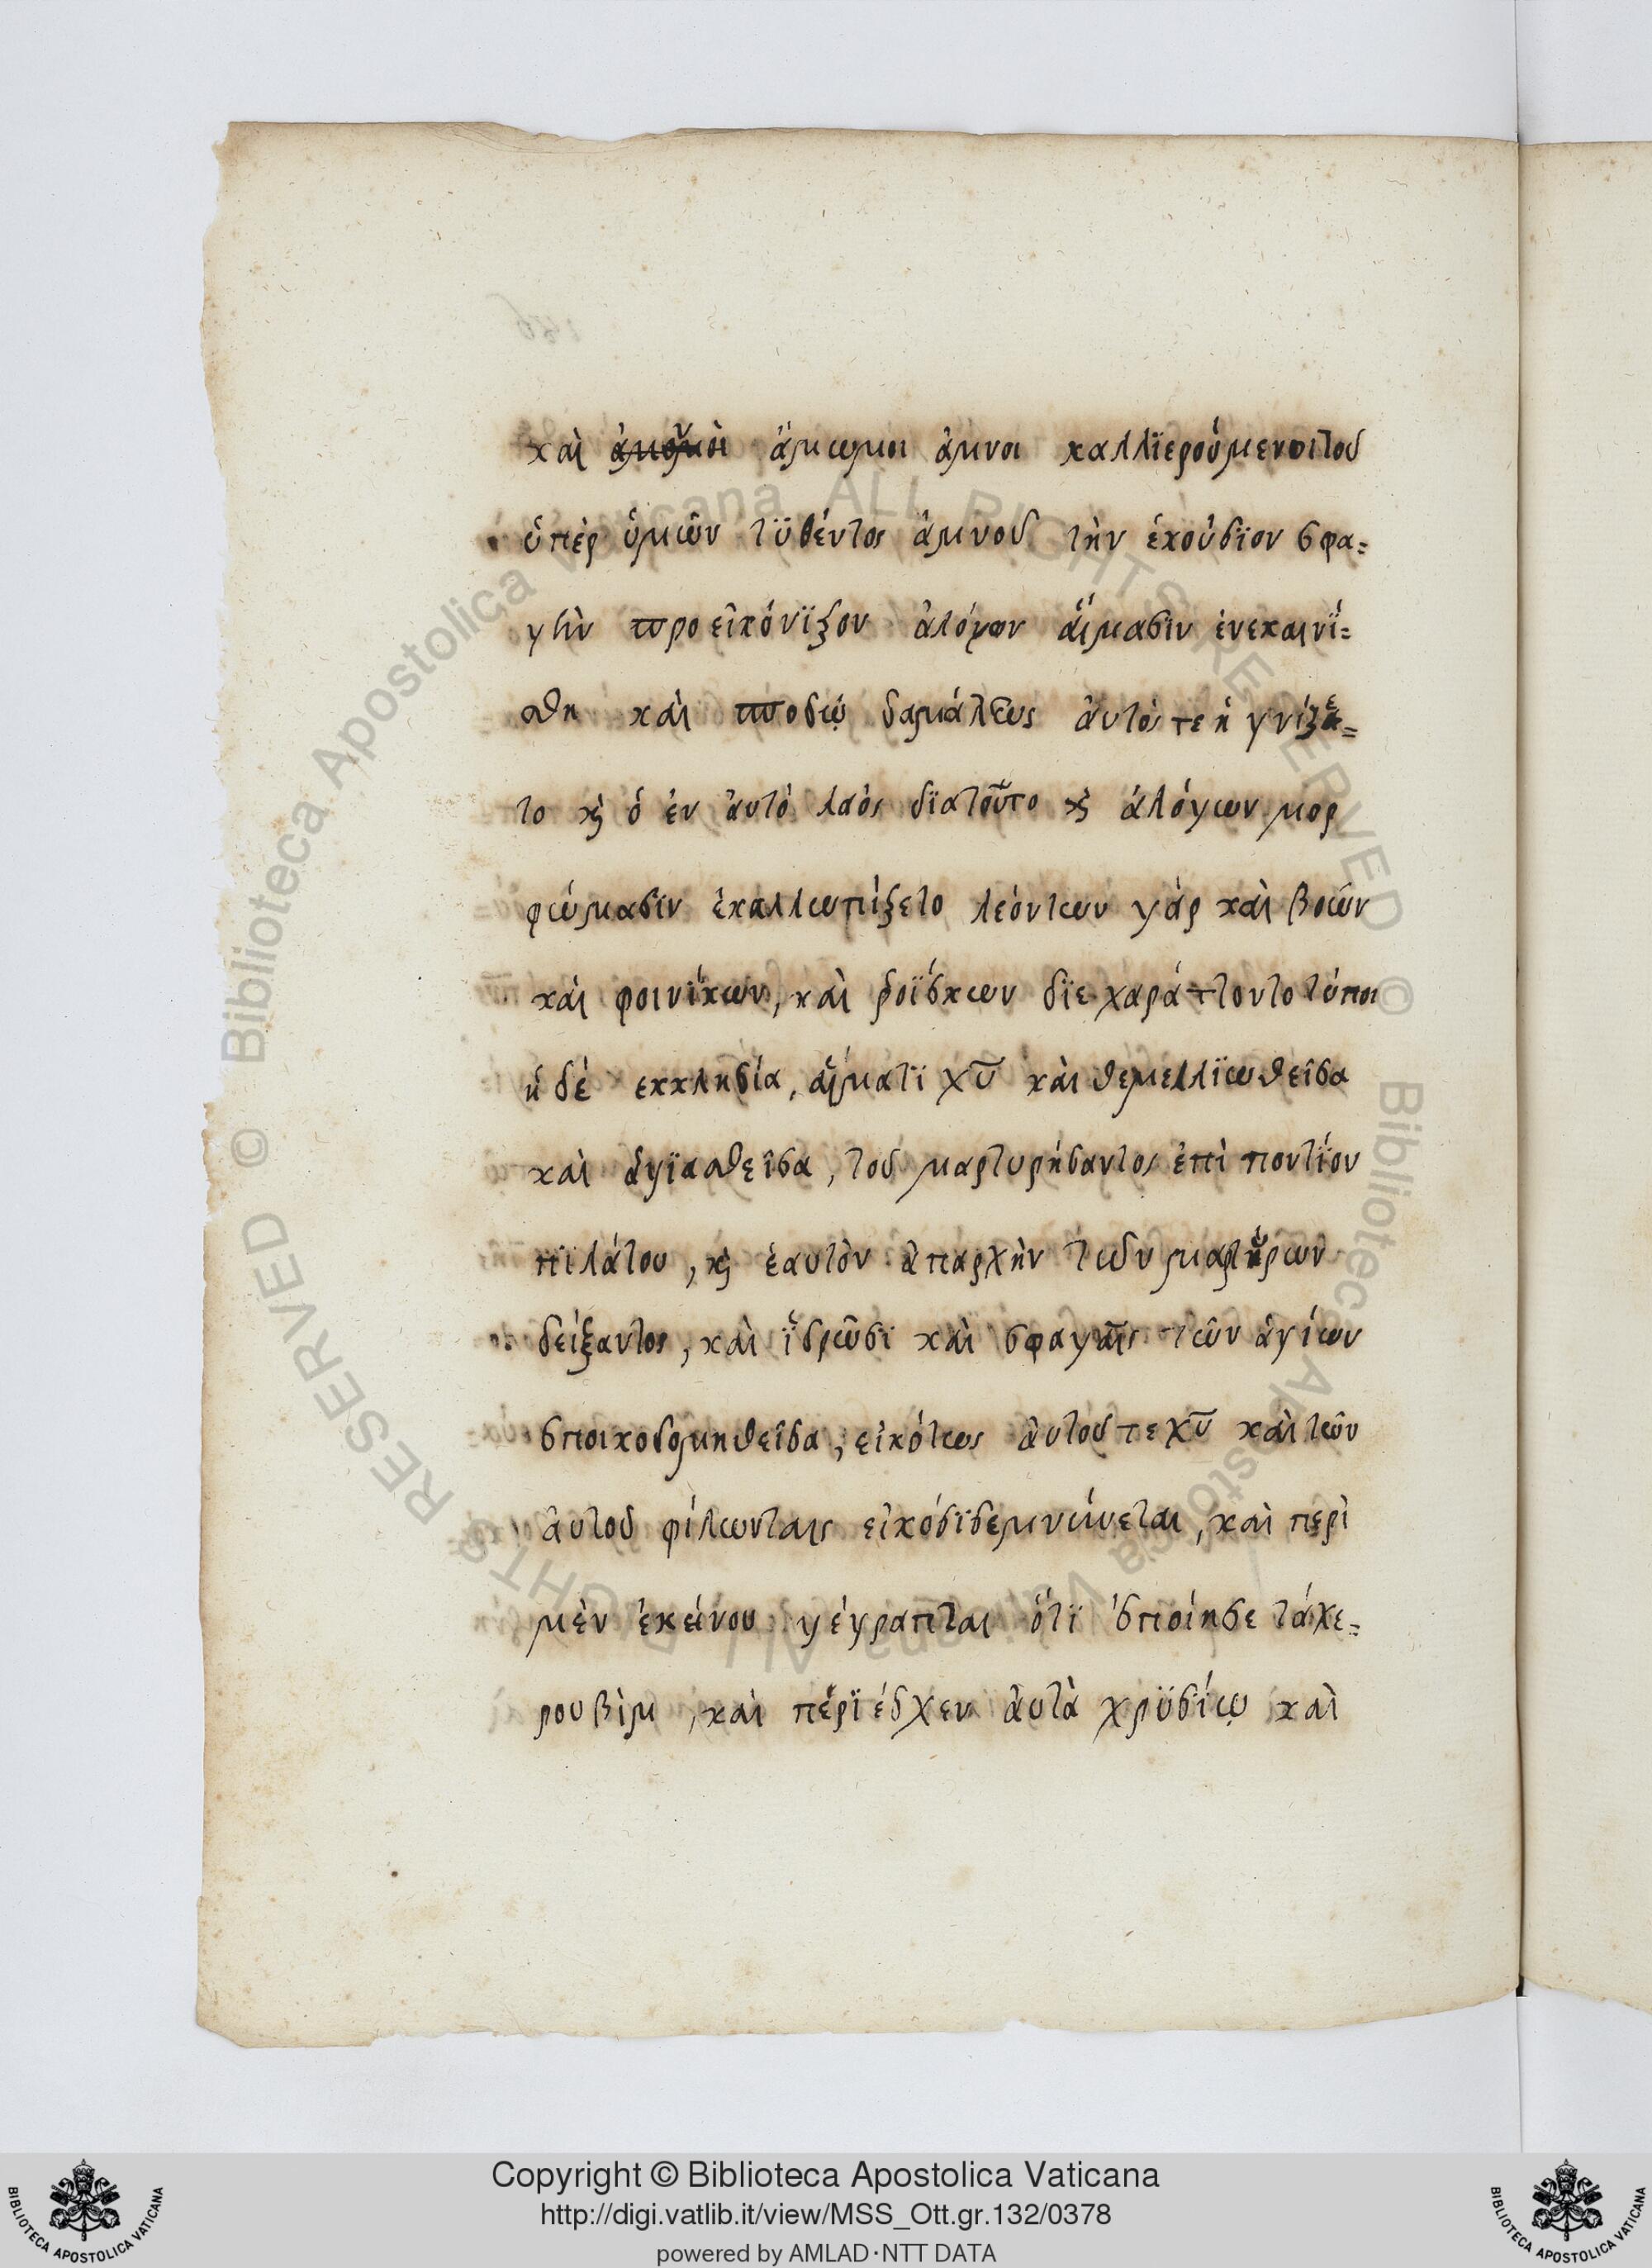 καὶ ἀμωμοὶ ἄμωμοι ἀμνοι καλλϊερούμενοιτοῦ
ὑπὲρ ὑμῶν τϋθέντος ἀμνοῦ τὴν ἑκούσϊον σφα=
γὴν προεικόνϊζον ἀλόγων αἵμασϊν ἐνεκαινΐ=
σθη καὶ σποδῷ δαμάλεως ἀυτός τε ἡγνίζε=
το καὶ ὁ ἐν ἀυτὸ λαὸς δϊατοῦτο καὶ ἀλόγων μορ
φώμασϊν ἐκαλλωπίζετο λεόντων γάρ καὶ βοῶν
καὶ φοινΐκων, καὶ ῥοΐσκων δϊεχαράττοντο τύποι
ἡ δὲ εκκλησία, αἵματϊ χῦ καὶ θεμελλϊωθεῖσα
καὶ ἁγϊασθεῖσα, τοῦ μαρτυρήσαντος ἐπὶ ποντΐου
πϊλάτου, καὶ ἑαυτὸν ἀπαρχὴν τῶν μαρτύρων
δείξαντος, καὶ ἱδρῶσϊ καὶ σφαγαῖς τῶν ἁγίων
ἐποικοδομηθεῖσα, εἰκότως ἀυτοῦ τε χῦ καὶ τῶν
ἀυτοῦ φίλωνταις εἰκόσϊσεμνύνεται, καὶ περὶ
μὲν ἐκείνου γέγραπται ὅτϊ ἐποίησε τάχε=
ρουβὶμ, καὶ πέρϊέσχεν ἀυτὰ χρϋσίῳ καὶ
Copyright © Biblioteca Apostolica Vaticana
http://digi.vatlib.it/view/MSS_Ott.gr.132/0378
powered by AMLAD·NTT DATA